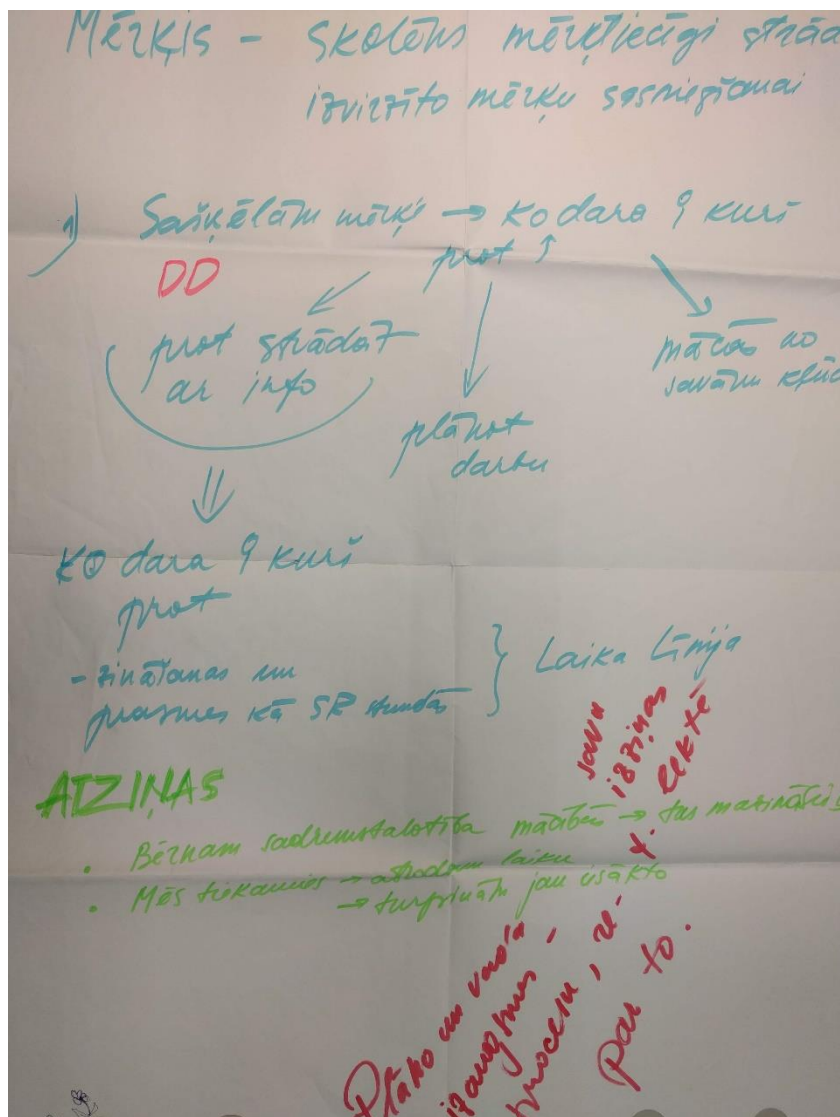 Mērķis - skolēns mērķtiecīgi strād
izvirzīto mērķu sasniegšanai
1) Sašķēlām mērķi → ko dara 9 kurš
prot ↑
DD
prot strādāt
ar info
plānot
darbu
mācās no
savām kļūd
KO dara 9 kurš
prot
- zināšanas un
prasmes kā SR stundās } Laika Līnija
ATZIŅAS
• Bērnam sadrumstalotība mācībās → tas mazinātos
• Mēs tiekamies → atrodam laiku
→ turpinām jau iesākto
Plāno un vada savu
izaugsmes - izziņas
procesu, re- f. lektē
par to.